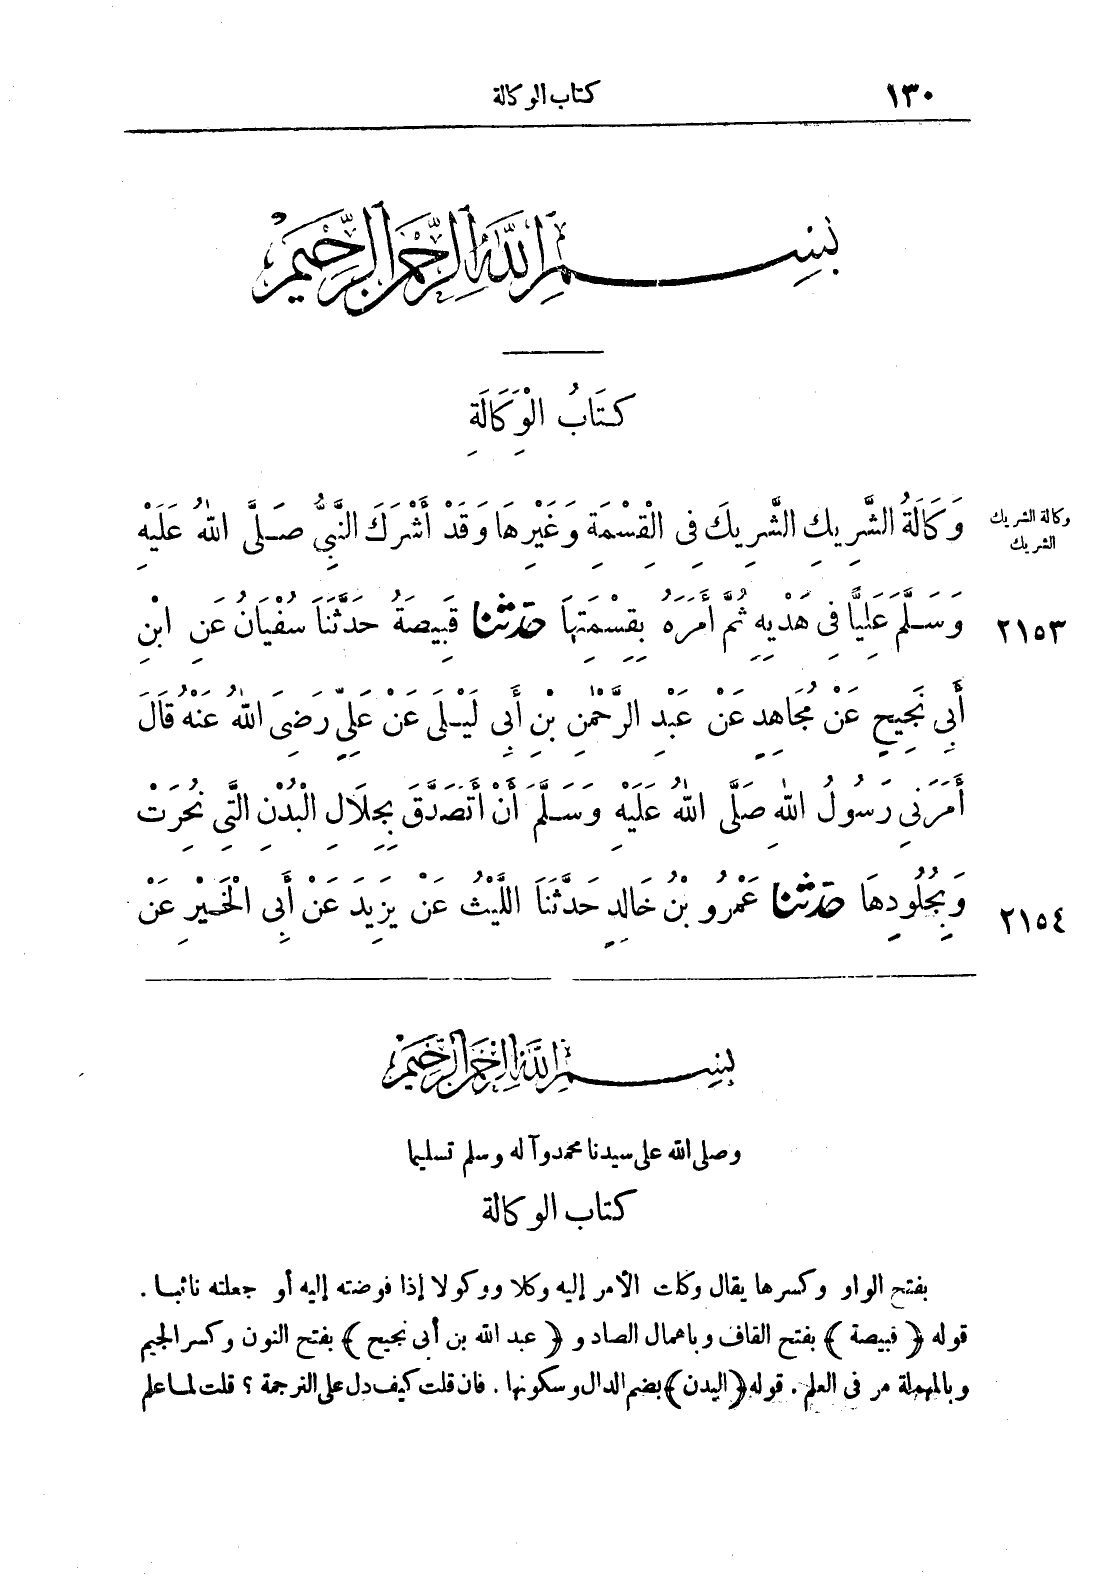 ١٣٠ كتاب الوكالة
بسم الله الرحمن الرحيم
كِتَابُ الْوَكَالَةِ
وَكَالَةُ الشَّرِيكِ الشَّرِيكَ فِى الْقِسْمَةِ وَغَيْرِهَا وَقَدْ أَشْرَكَ النَّبِيُّ صَلَّى اللهُ عَلَيْهِ
وكالة الشريك
الشريك
وَسَلَّمَ عَلِيًّا فِى هَدْيِهِ ثُمَّ أَمَرَهُ بِقِسْمَتِهَا حَدَّثَنَا قَبِيصَةُ حَدَّثَنَا سُفْيَانُ عَنِ ابْنِ
٢١٥٣
أَبِى نَجِيحٍ عَنْ مُجَاهِدٍ عَنْ عَبْدِ الرَّحْمٰنِ بْنِ أَبِى لَيْلَى عَنْ عَلِيٍّ رَضِىَ اللهُ عَنْهُ قَالَ
أَمَرَنِى رَسُولُ اللهِ صَلَّى اللهُ عَلَيْهِ وَسَلَّمَ أَنْ أَتَصَدَّقَ بِجِلَالِ الْبُدْنِ الَّتِى نُحِرَتْ
وَبِجُلُودِهَا حَدَّثَنَا عَمْرُو بْنُ خَالِدٍ حَدَّثَنَا اللَّيْثُ عَنْ يَزِيدَ عَنْ أَبِى الْخَيْرِ عَنْ
٢١٥٤
بسم الله الرحمن الرحيم
وصلى الله على سيدنا محمد وآله وسلم تسليما
كتاب الوكالة
بفتح الواو وكسرها يقال وكلت الأمر إليه وكلا ووكولا إذا فوضته إليه أو جعلته نائبا .
قوله ﴿ قبيصة ﴾ بفتح القاف وباهمال الصاد و ﴿ عبد الله بن أبى نجيح ﴾ بفتح النون وكسر الجيم
وبالمهملة مر فى العلم . قوله ﴿البدن﴾ بضم الدال وسكونها . فان قلت كيف دل على الترجمة ؟ قلت لما علم